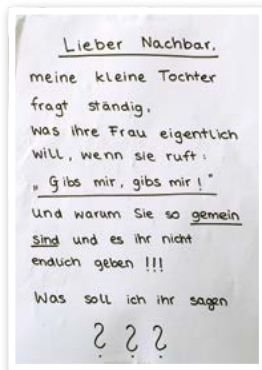 Lieber Nachbar,
meine kleine Tochter
fragt ständig,
was ihre Frau eigentlich
will, wenn sie ruft:
„Gibs mir, gibs mir!"
und warum Sie so gemein
sind und es ihr nicht
endlich geben !!!
Was soll ich ihr sagen
? ? ?